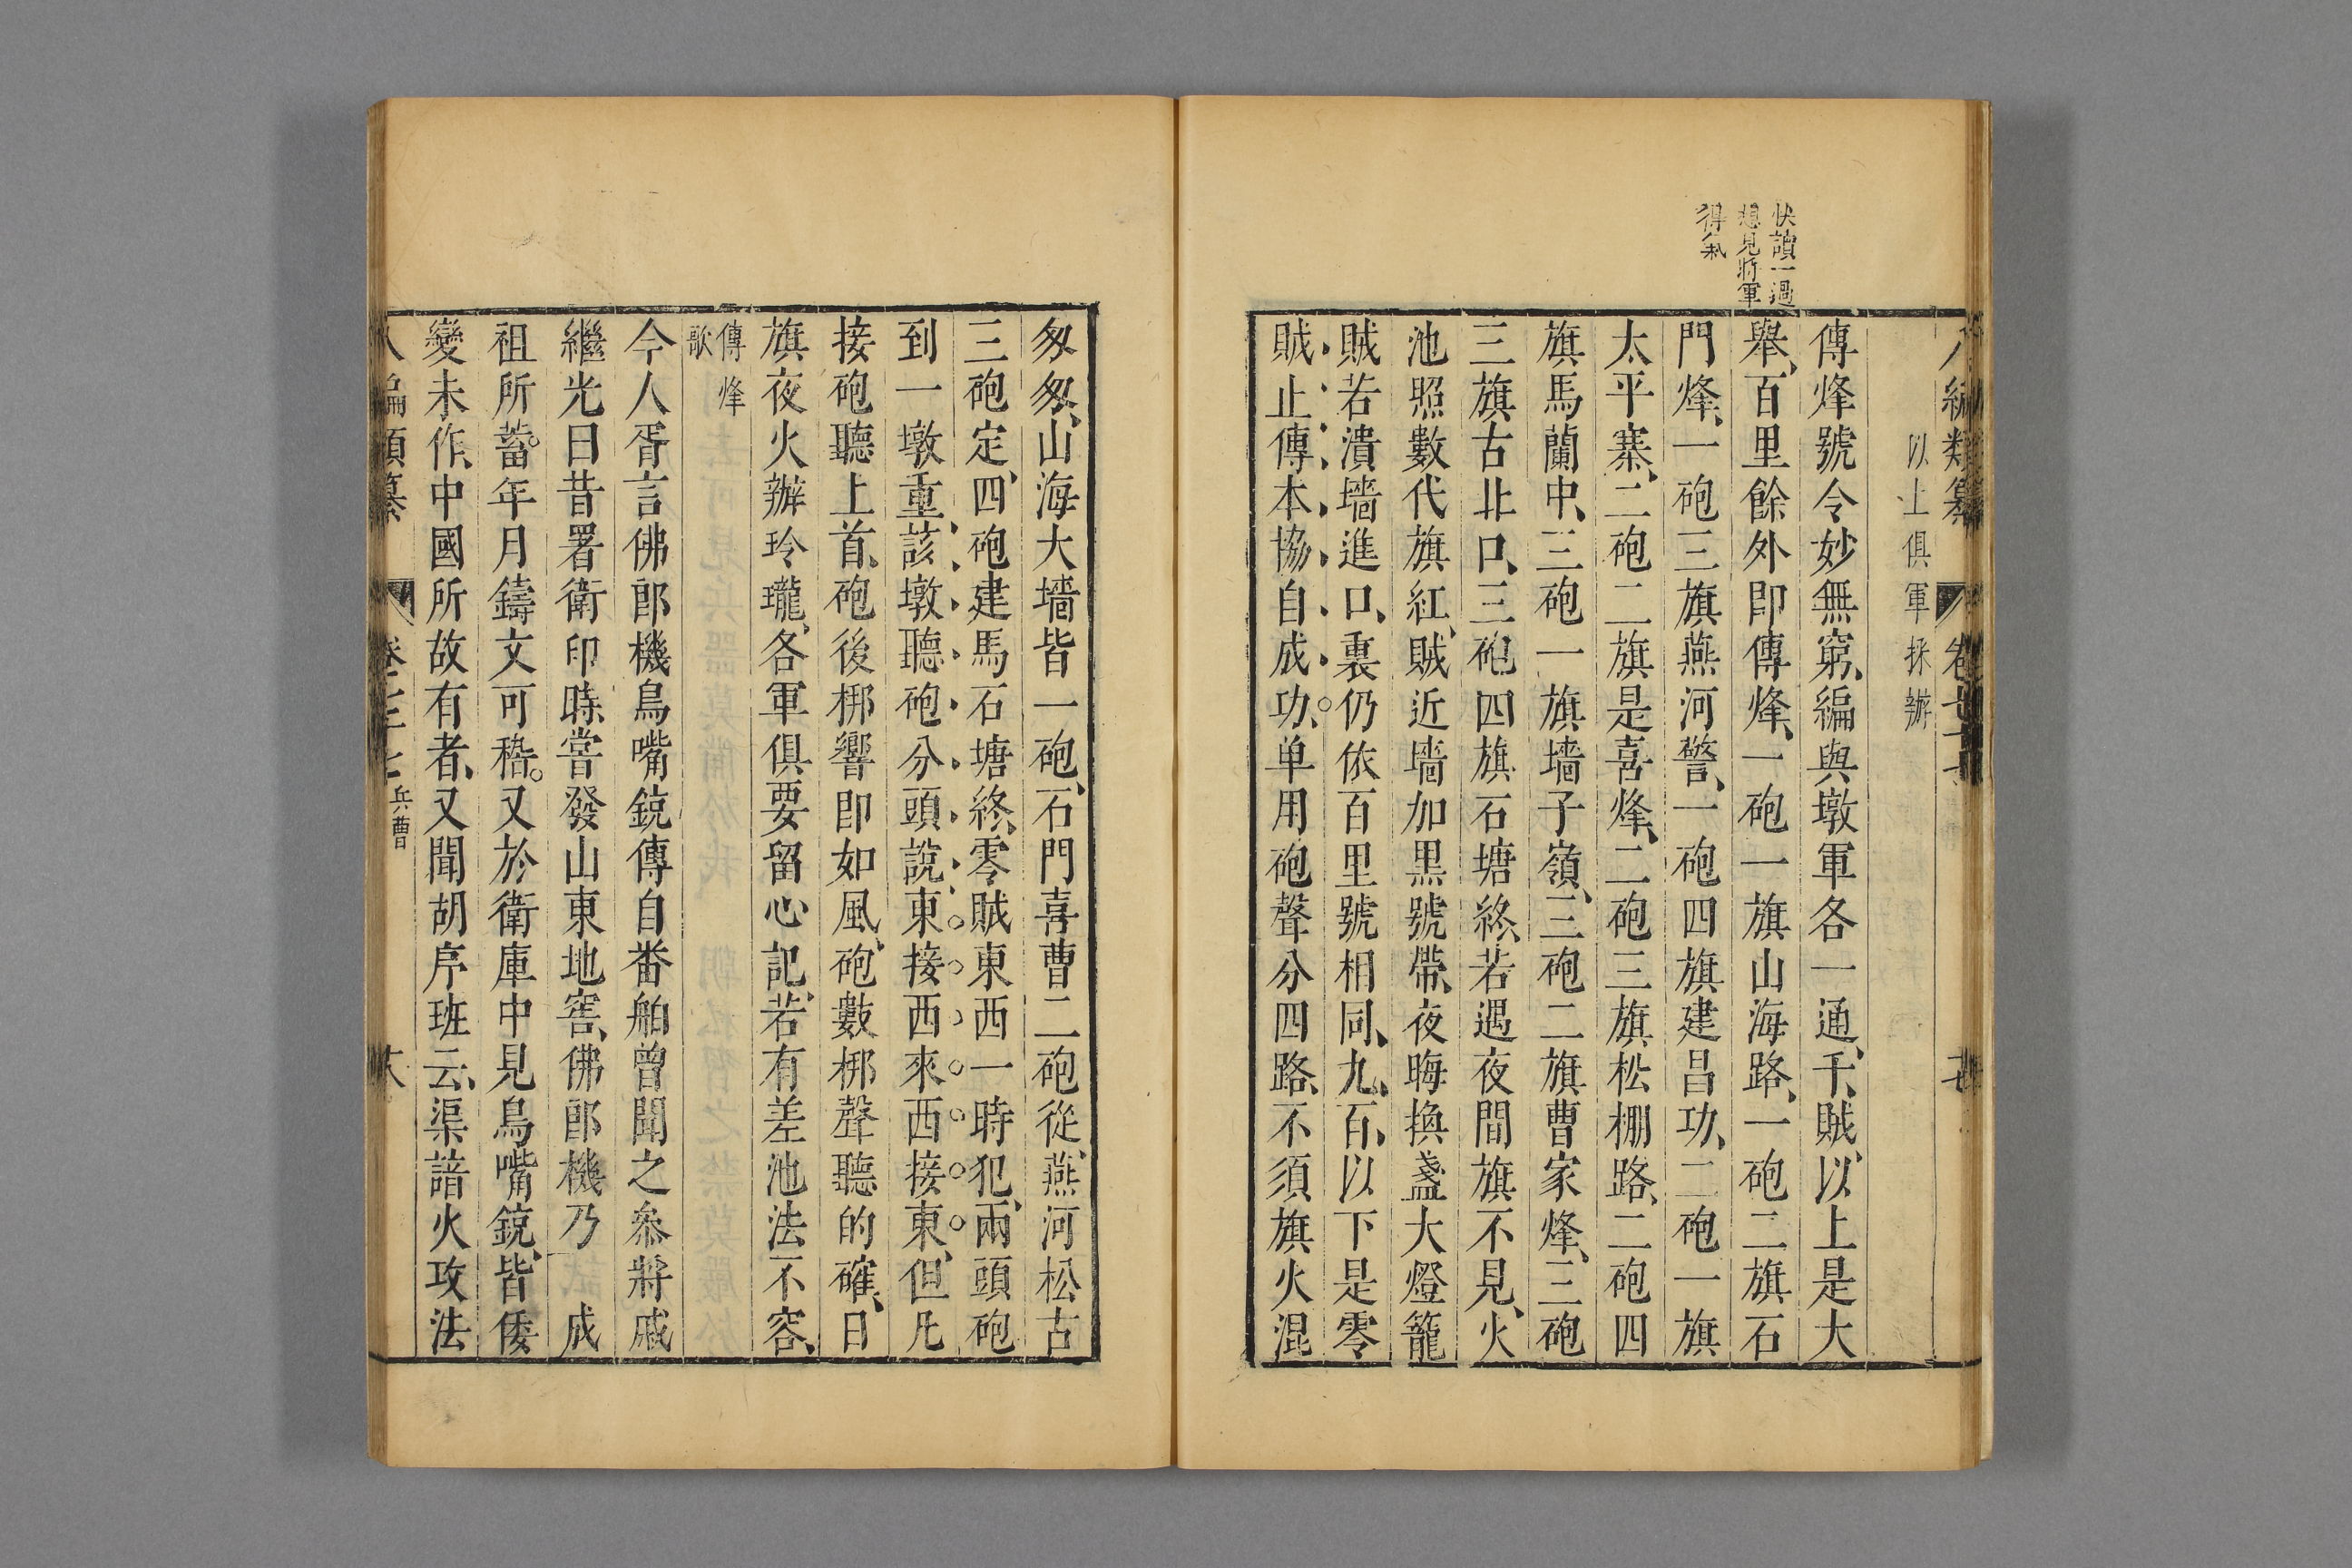 快讀一過
想見將軍
得氣
八編類纂
以上俱軍採辦
傳烽號令妙無窮、編與墩軍各一通、千賊以上是大
舉、百里餘外卽傳烽、一砲一旗山海路、一砲二旗石
門烽、一砲三旗燕河警、一砲四旗建昌功、二砲一旗
太平寨、二砲二旗是喜烽、二砲三旗松棚路、二砲四
旗馬蘭中、三砲一旗墻子嶺、三砲二旗曹家烽、三砲
三旗古北口、三砲四旗石塘終、若遇夜間旗不見、火
池照數代旗紅、賊近墻加黑號帶、夜晦換盞大燈籠
賊若潰墻進口、裏仍依百里號相同、九百以下是零
賊止傳本協自成功、单用砲聲分四路、不須旗火混
匆匆、山海大墻皆一砲、石門喜曹二砲從、燕河松古
三砲定、四砲建馬石塘終、零賊東西一時犯、兩頭砲
到一墩重、該墩聽砲分頭說、東接西來西接東、但凡
接砲聽上首、砲後梆響卽如風、砲數梆聲聽的確、日
旗夜火辦玲瓏、各軍俱要留心記、若有差池法不容、
傳烽
歌
今人胥言佛郎機鳥嘴銃傳自番舶曾聞之叅將戚
繼光曰昔署衛印時嘗發山東地窖、佛郎機乃 成
祖所蓄。年月鑄文可稽。又於衛庫中見鳥嘴銃、皆倭
變未作、中國所故有者、又聞胡序班云、渠諳火攻法
八編類纂 卷七十七 兵曹